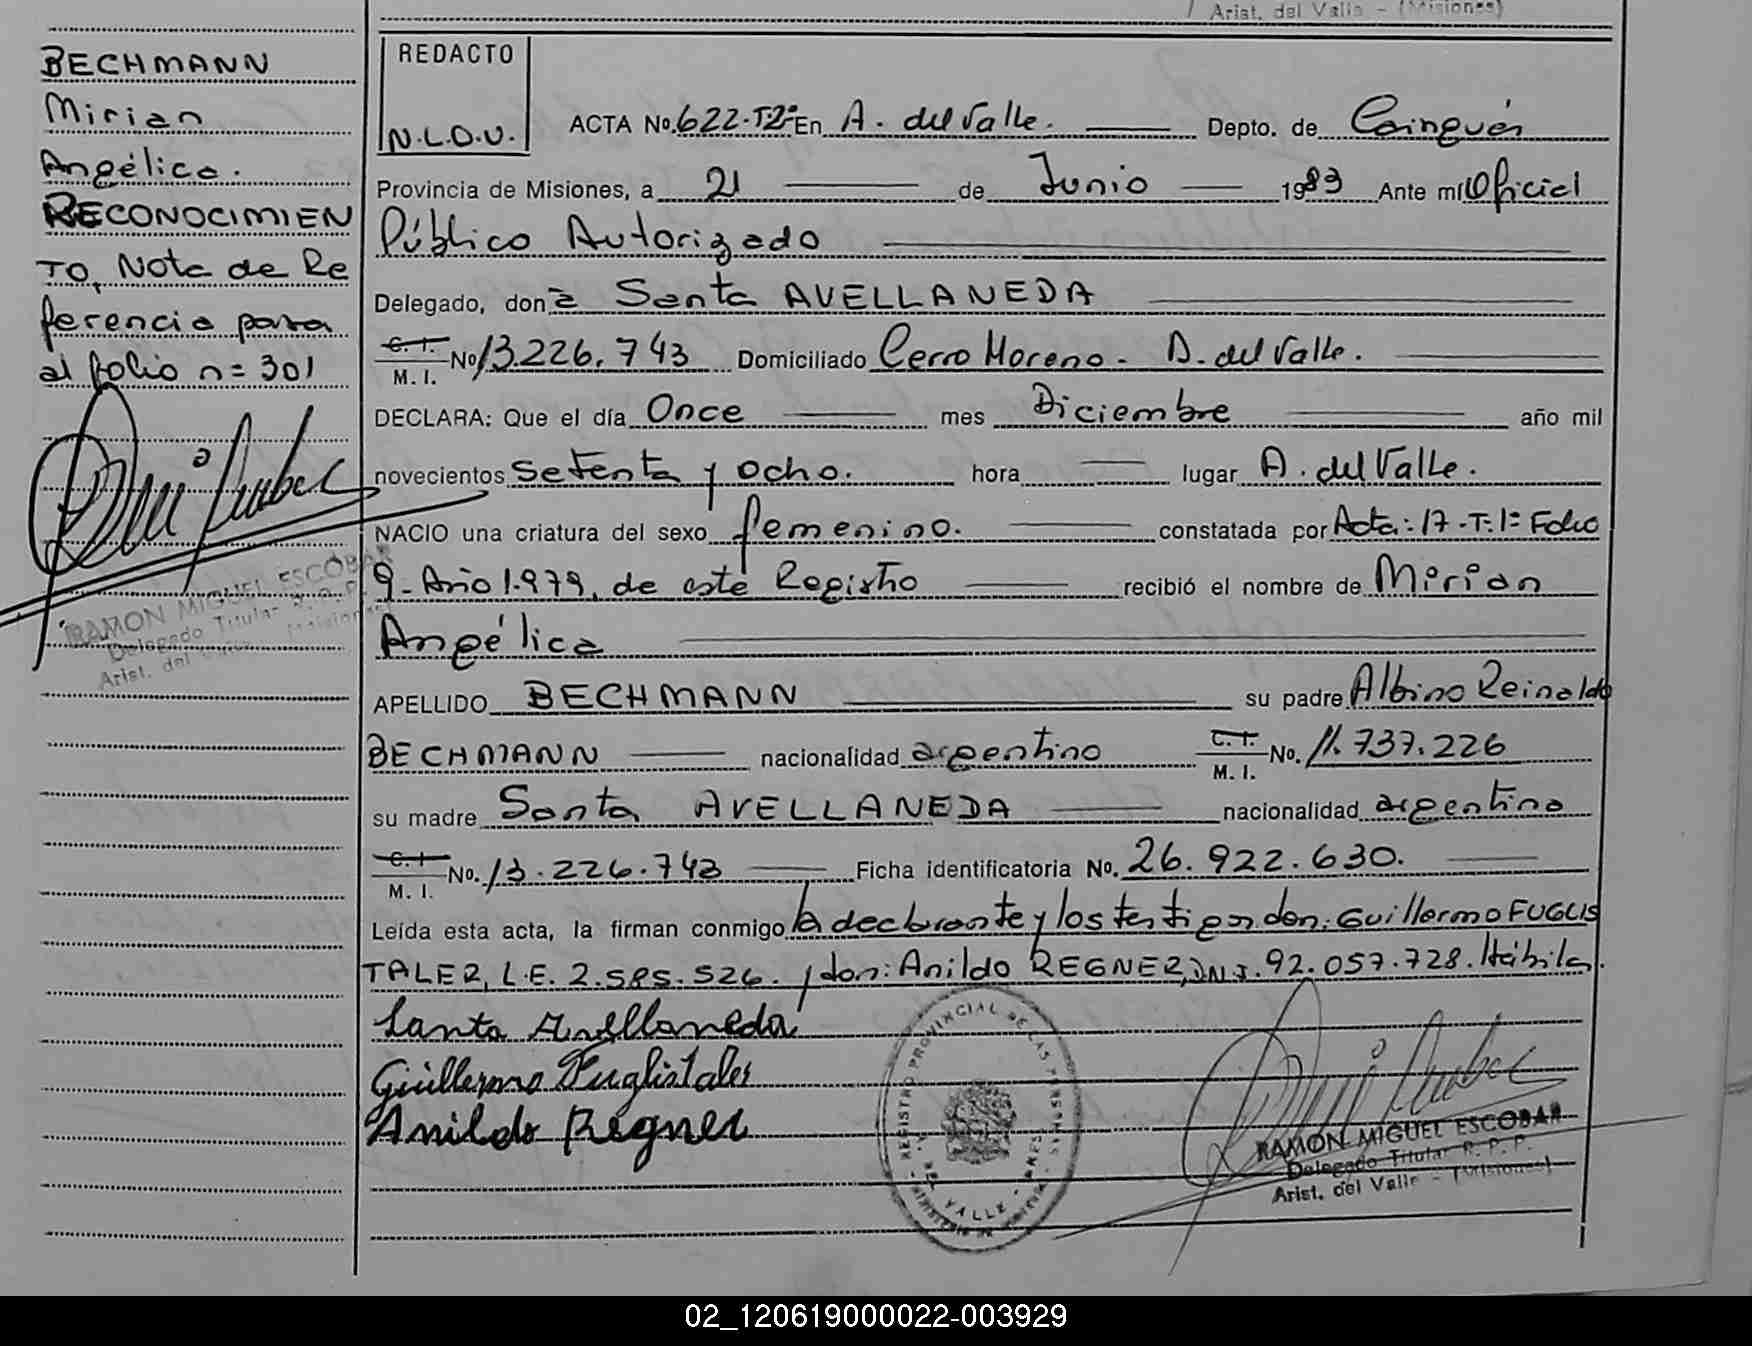 Arist. del Valle - (Misiones)
BECHMANN
Mirian
Angélica.
RECONOCIMIEN
TO, Nota de Re
ferencia para
al folio n= 301
RAMON MIGUEL ESCOBAR
Delegado Titular R. P. P.
Arist. del Valle - (Misiones)
REDACTO
N.L.D.V.
ACTA No. 622-Tº2º En A. del Valle. Depto. de Cainguás
Provincia de Misiones, a 21 de Junio 1983 Ante mí Oficial
Público Autorizado
Delegado, doña Santa AVELLANEDA
C. I. M. I. No 13.226.743 Domiciliado Cerro Moreno - A. del Valle.
DECLARA: Que el día Once mes Diciembre año mil
novecientos setenta y ocho. hora lugar A. del Valle.
NACIO una criatura del sexo femenino. constatada por Acta: 17-T:1º Folio
9- Año 1.979, de este Registro recibió el nombre de Mirian
Angélica
APELLIDO BECHMANN su padre Albino Reinaldo
BECHMANN nacionalidad argentino C. I. M. I. No. 11.737.226
su madre Santa AVELLANEDA nacionalidad argentina
C. I. M. I. No. 13.226.743 Ficha identificatoria No. 26.922.630.
Leída esta acta, la firman conmigo la declarante y los testigos don: Guillermo FUGLIS
TALER, L.E. 2.585.526. y don: Anildo REGNER, D.N.I. 92.057.728. Hábiles.
Santa Avellaneda
Guillermo Fuglistaler
Anildo Regner
REGISTRO PROVINCIAL DE LAS PERSONAS
A. DEL VALLE
RAMON MIGUEL ESCOBAR
Delegado Titular R. P. P.
Arist. del Valle - (Misiones)
02_120619000022-003929